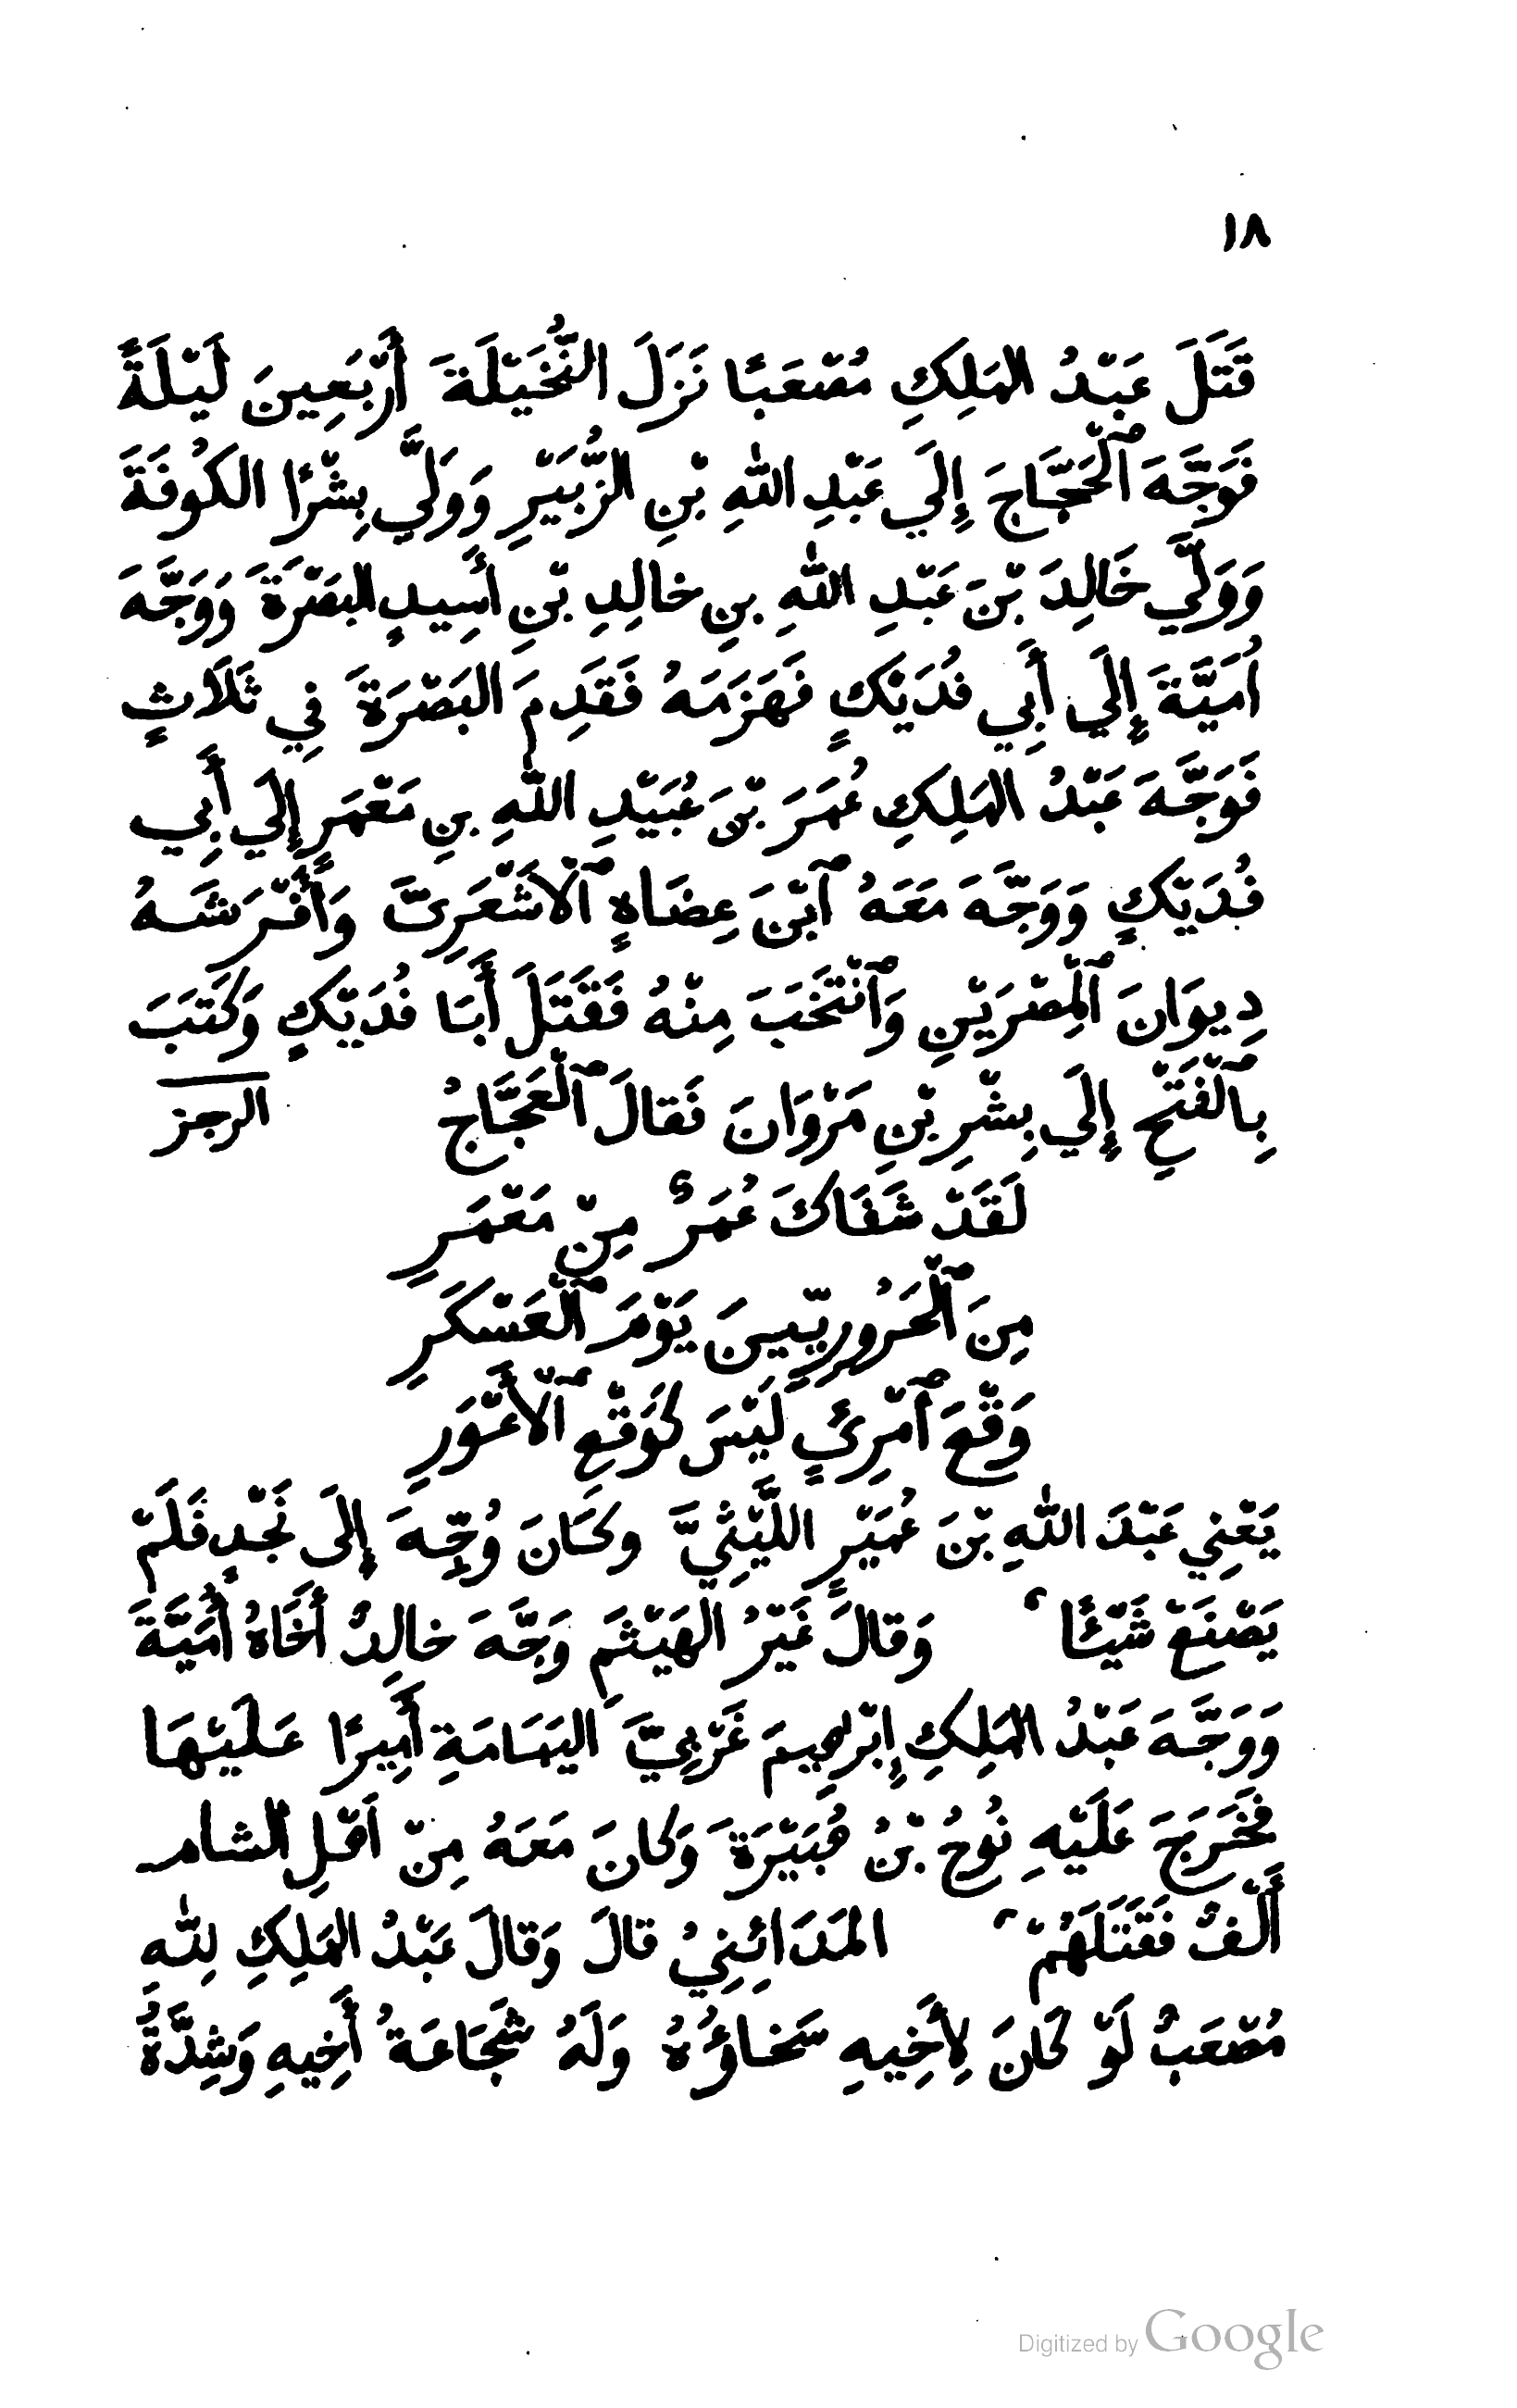 ١٨
قَتَلَ عَبْدُ المَلِكِ مُصْعَبًا نَزَلَ النُّخَيْلَةَ أَرْبَعِينَ لَيْلَةً
فَوَجَّهَ ٱلْحَجَّاجَ إِلَي عَبْدِ اللّٰهِ بْنِ الزُّبَيْرِ وَوَلَّي بِشْرًا الكُوفَةَ
وَوَلَّي خَالِدَ بْنَ عَبْدِ اللّٰهِ بنِ خالِدِ بْنِ أَسِيدٍ البَصْرَةَ وَوَجَّهَ
أُمَيَّةَ إِلَي أَبِي فُدَيْكٍ فَهَزَمَهُ فَقَدِمَ البَصْرَةَ فِي ثَلَاثٍ
فَوَجَّهَ عَبْدُ المَلِكِ عُمَرَ بْنَ عُبَيْدِ اللّٰهِ بنِ مَعْمَرٍ إِلَي أَبِي
فُدَيْكٍ وَوَجَّهَ مَعَهُ ٱبْنَ عِضَاهٍ ٱلْأَشْعَرِىَّ وَأَفْرَشَهُ
دِيوَانَ ٱلْمِصْرَيْنِ وَٱنْتَخَبَ مِنْهُ فَقَتَلَ أَبَا فُدَيْكٍ وَكَتَبَ
بِٱلْفَتْحِ إِلَي بِشْرِ بْنِ مَرْوَانَ فَقالَ ٱلْعَجَّاجُ الرجز
لَقَدْ شَفَاكَ عُمَرُ مِنْ مَعْمَرِ
مِنَ ٱلْحَرُورِيّينَ يَوْمَ ٱلْعَسْكَرِ
وَقْعَ ٱمْرِئٍ لَيْسَ كَوَقْعِ ٱلْأَعْوَرِ
يَعْنِي عَبْدَ اللّٰهِ بْنَ عُمَيْرٍ اللَّيْثِيَّ وكَانَ وُجِّهَ إِلَى نَجْدٍ فَلَمْ
يَصْنَعْ شَيْئًا وَقالَ غَيْرُ الهَيْثَمِ وَجَّهَ خالِدٌ أَخَاهُ أُمَيَّةَ
وَوَجَّهَ عَبْدُ المَلِكِ إِبْرٰهِيمَ عَرْبِيَّ اليَمَامَةِ أَمِيرًا عَلَيْهَا
فَخَرَجَ عَلَيْهِ نُوحُ بْنُ هُبَيْرَةَ وَكانَ مَعَهُ مِنْ أَهْلِ الشام
أَلْفٌ فَقَتَلَهُمْ المَدَائِنِيُ قالَ وَقالَ عَبْدُ المَلِكِ لِلّٰهِ
مُصْعَبٌ لَوْ كَانَ لِأَخِيهِ سَخاؤُهُ وَلَهُ شَجَاعَةُ أَخِيهِ وَشِدَّةُ
Digitized by Google